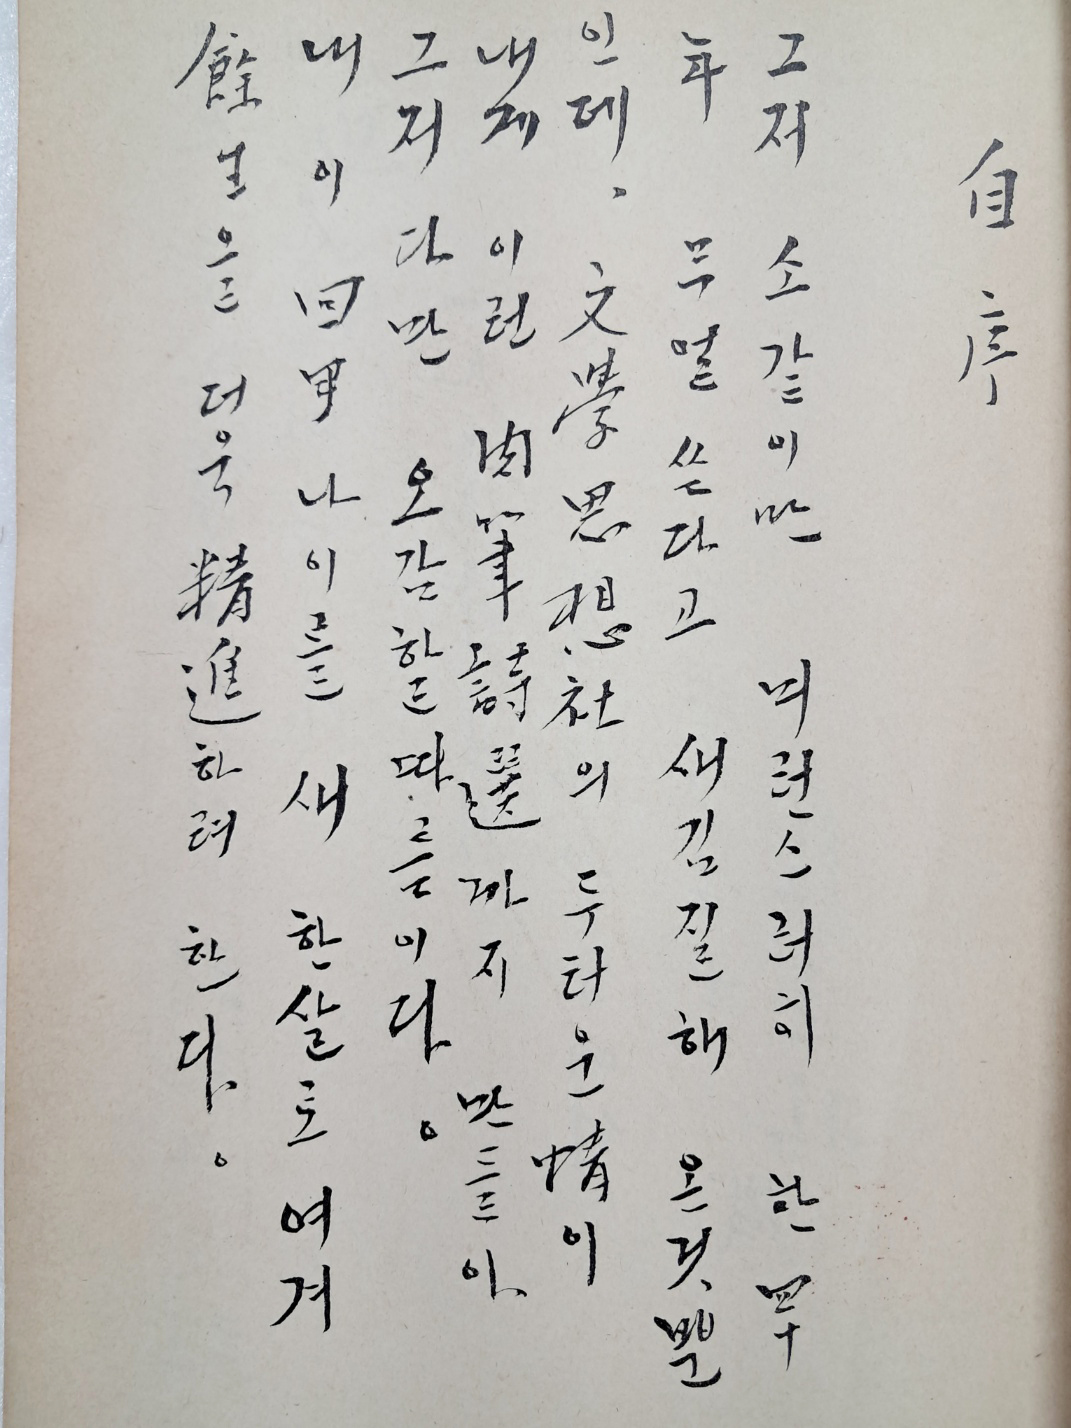 自序
그저 소같이만 미련스러히 한 四十
年 무얼 쓴다고 새김질해 온것뿐
인데、文學思想社의 두타운 情이
내게 이런 肉筆詩選까지 만들아
그저 다만 오감할 따름이다。
내 이 回甲 나이를 새 한살로 여겨
餘生을 더욱 精進하려 한다。